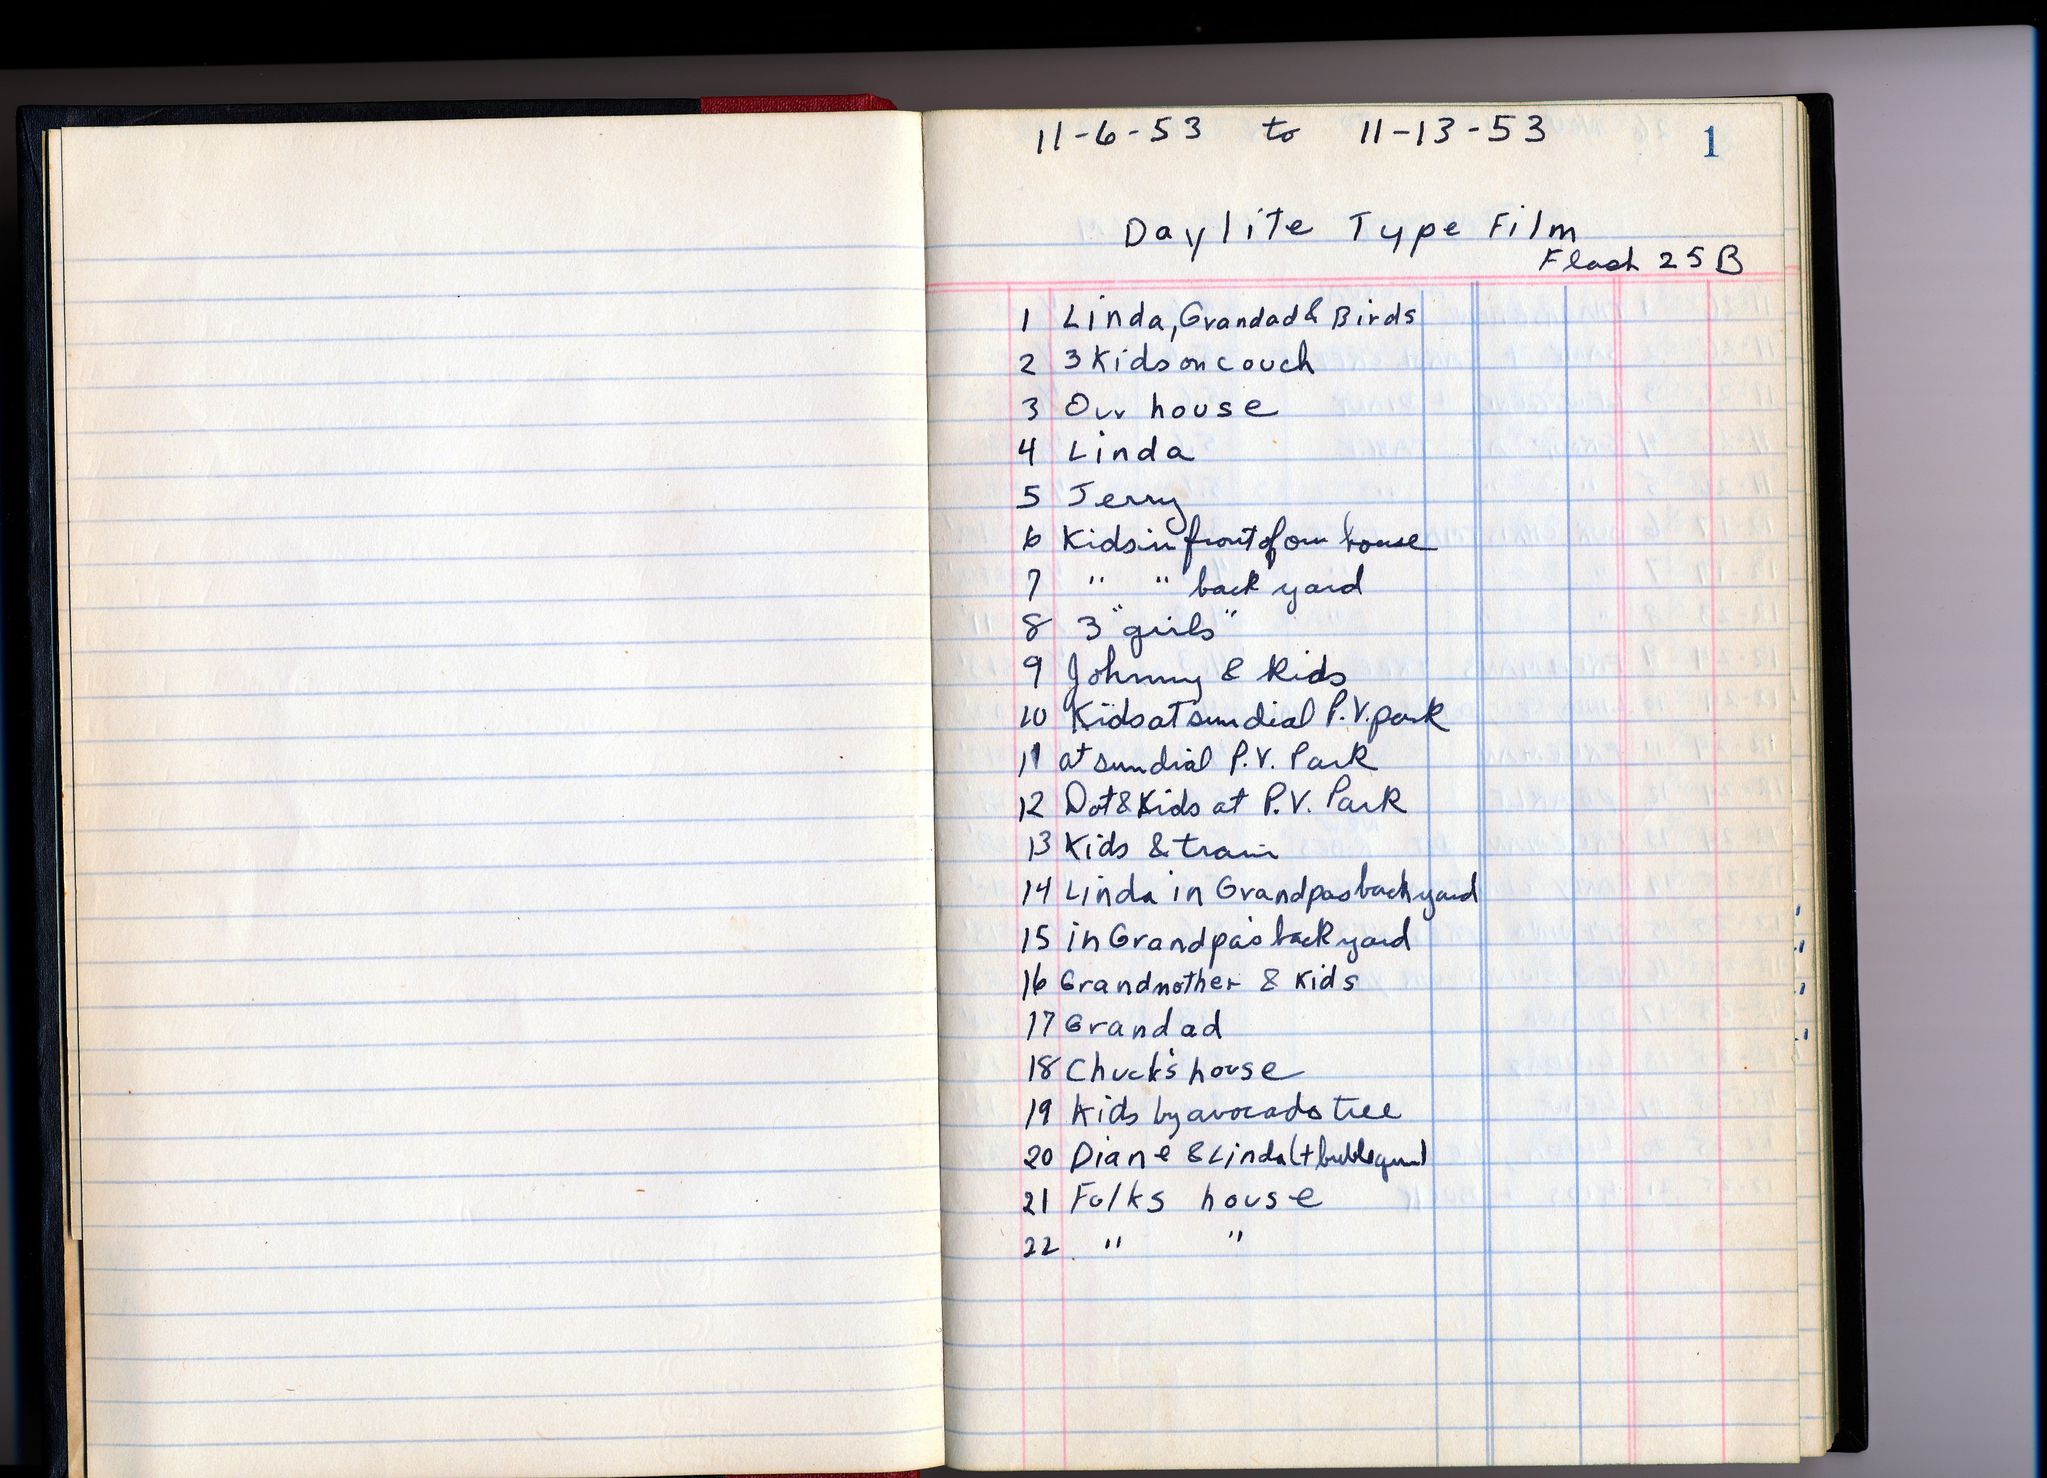 11-6-53 to 11-13-53
1
Daylite Type Film
Flash 25B
1 Linda, Grandad & Birds
2 3 Kids on couch
3 Our house
4 Linda
5 Jerry
6 Kids in front of our house
7 " " back yard
8 3 "girls"
9 Johnny & Kids
10 Kids at sundial P.V. park
11 at sundial P.V. Park
12 Dot & Kids at P.V. Park
13 Kids & train
14 Linda in Grandpas back yard
15 in Grandpa's back yard
16 Grandmother & Kids
17 Grandad
18 Chuck's house
19 Kids by avocado tree
20 Diane & Linda (+ bubblegum)
21 Folks house
22 " "